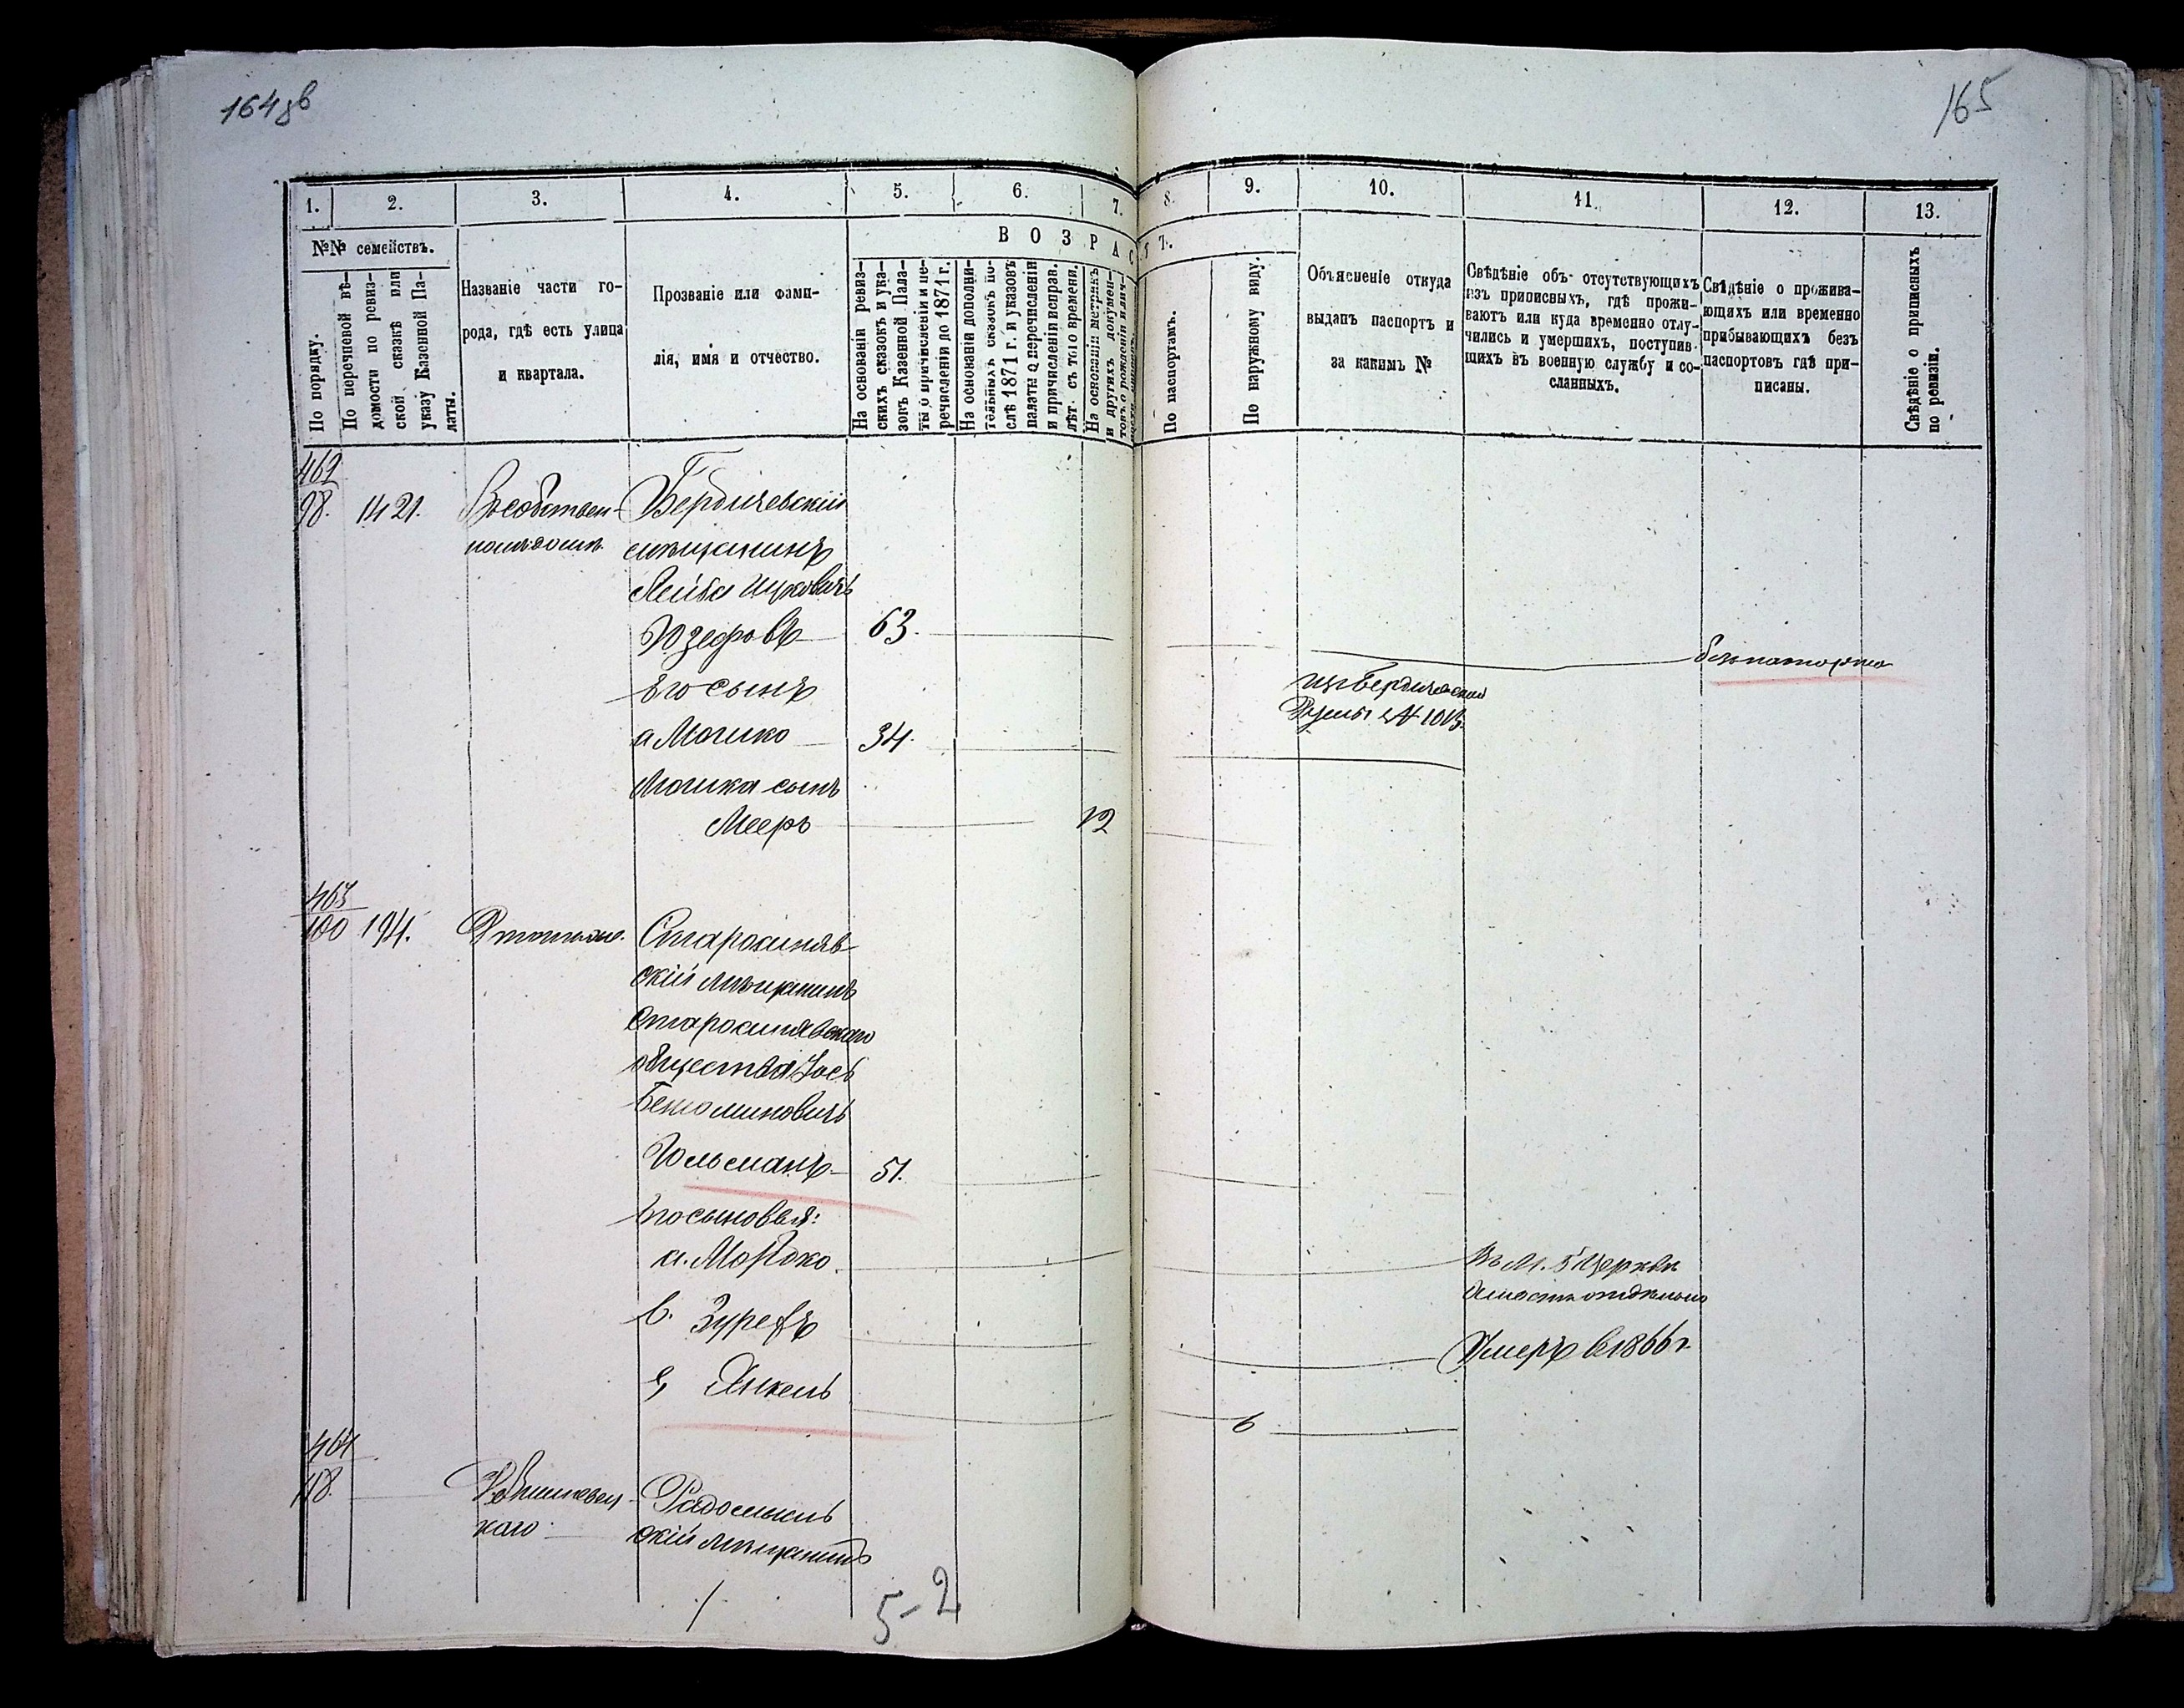 164 об
165
1.
2.
3.
4.
5.
6.
7.
8.
9.
10.
11.
12.
13.
№№ семействъ.
По порядку.
По перечневой вѣ-
домости по ревиз-
ской сказкѣ или
указу Казенной Па-
латы.
Названіе части го-
рода, гдѣ есть улица
и квартала.
Прозваніе или фами-
лія, имя и отчество.
ВОЗРАСТЪ.
На основаніи ревиз-
скихъ сказокъ и ука-
зовъ Казенной Пала-
ты о причисленіи и пе-
речисленіи до 1871 г.
На основаніи дополни-
тельныхъ сказокъ по-
слѣ 1871 г. и указовъ
палаты о перечисленіи
и причисленіи исправ.
лѣт. съ того времени.
На основаніи метрикъ
и другихъ докумен-
товъ о рожденіи
По паспортамъ.
По наружному виду.
Объясненіе откуда
выданъ паспортъ и
за какимъ №
Свѣдѣніе объ отсутствующихъ
изъ приписныхъ, гдѣ прожи-
ваютъ или куда временно отлу-
чились и умершихъ, поступив-
шихъ въ военную службу и со-
сланныхъ.
Свѣдѣніе о прожива-
ющихъ или временно
прибывающихъ безъ
паспортовъ гдѣ при-
писаны.
Свѣдѣніе о приписныхъ
по ревизіи.
462
98. 1421. Въ собствен- Бердичевскій
номъ домѣ мѣщанинъ
Лейба Ицковичъ
Юзефовъ 63. безъ паспорта
Его сынъ изъ Бердичевской
а Мошко 34.
Мошка сынъ
Мееръ 12
463
100 194. Старосиняв-
скій мѣщанинъ
Старосинявскаго
общества Іось
Беніоминовичъ
Гольсманъ 51.
Его сыновья:
а. Мордко въ М. Б Церкви
в. Зурехъ Умеръ въ 1866 г.
с, Янкель 6
464
118. Радомысль
скій мѣщанинъ
5-2